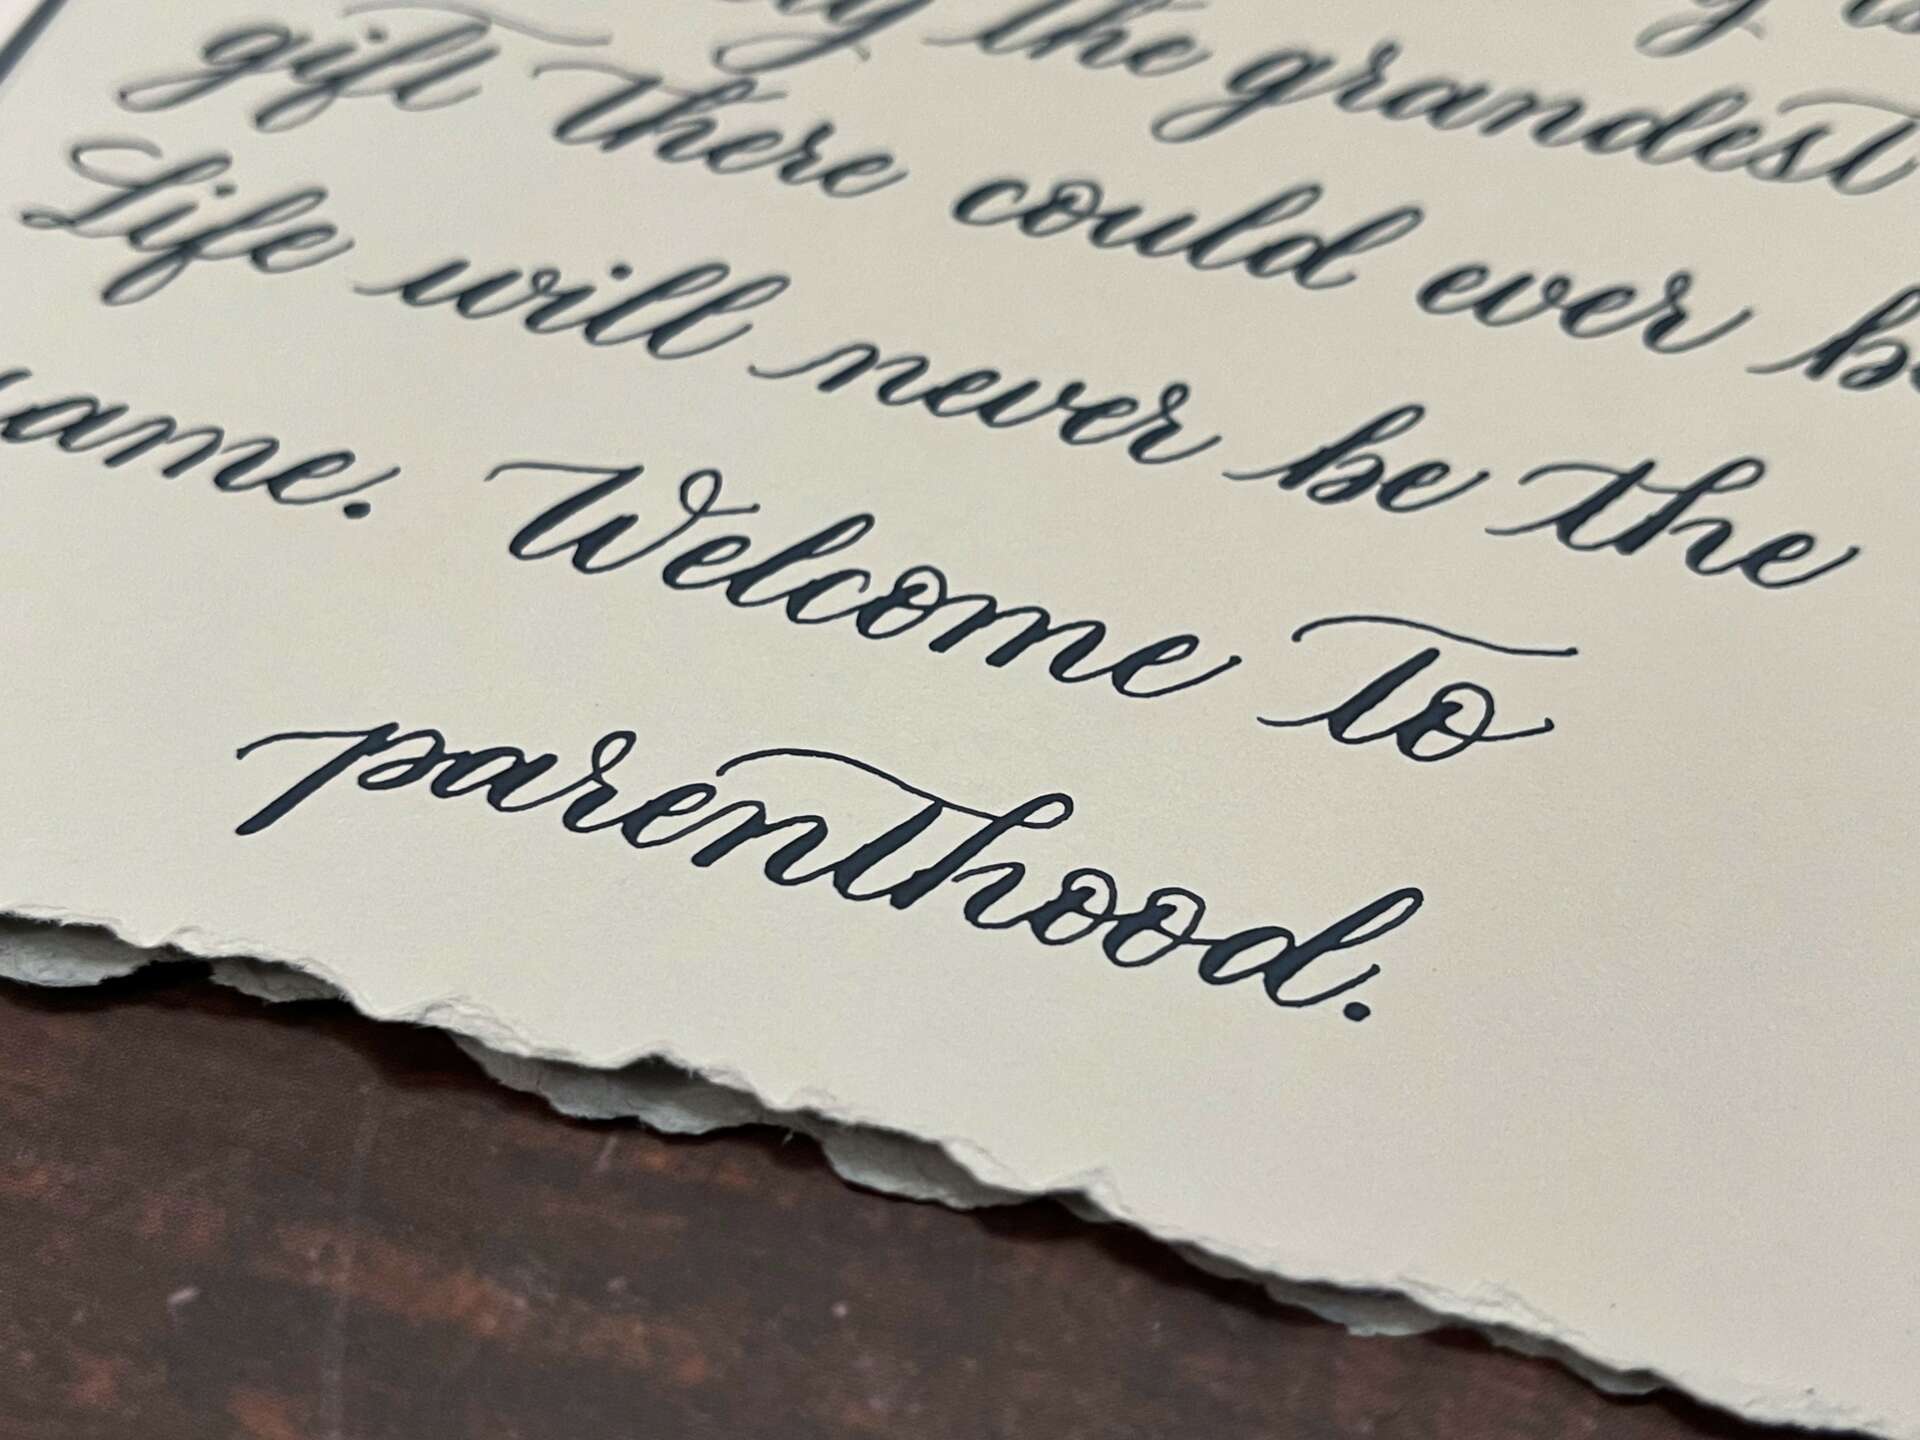 the grandest
gift there could ever be
Life will never be the
same. Welcome to
parenthood.